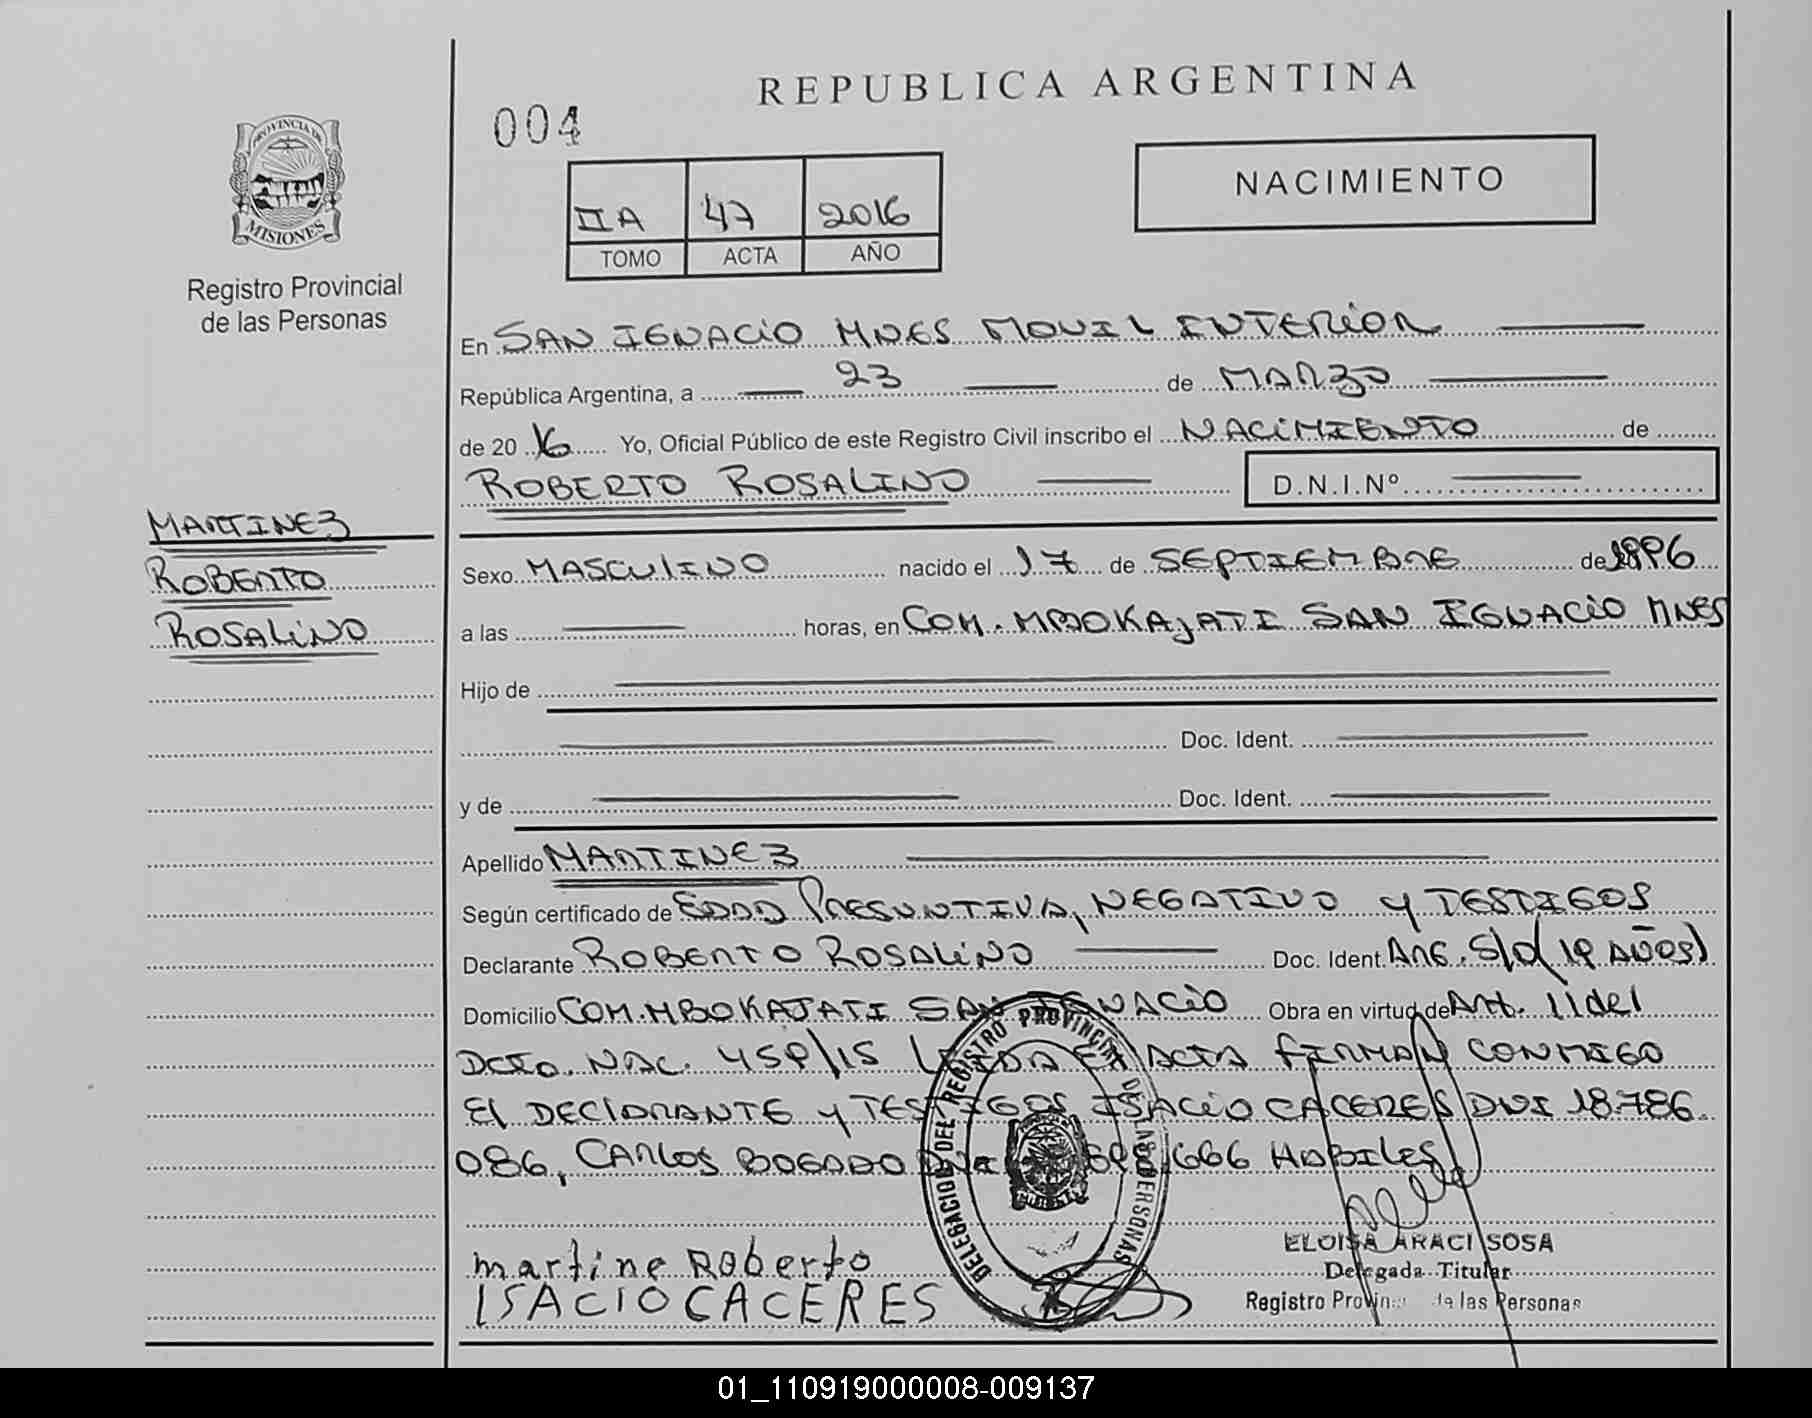 REPUBLICA ARGENTINA
004
PROVINCIA DE
MISIONES
Registro Provincial
de las Personas
IIA 47 2016
TOMO ACTA AÑO
NACIMIENTO
En SAN IGNACIO MNES MOVIL INTERIOR
República Argentina, a 23 de MARZO
de 20 16 Yo, Oficial Público de este Registro Civil inscribo el NACIMIENTO de
ROBERTO ROSALINO D.N.I.Nº
MARTINEZ
ROBERTO
ROSALINO
Sexo MASCULINO nacido el 17 de SEPTIEMBRE de 1996
a las horas, en COM. MBOKAJATI SAN IGNACIO MNES
Hijo de
Doc. Ident.
y de Doc. Ident.
Apellido MARTINEZ
Según certificado de EDAD PRESUNTIVA, NEGATIVO Y TESTIGOS
Declarante ROBERTO ROSALINO Doc. Ident. ARG. S/D (19 AÑOS)
Domicilio COM. MBOKAJATI SAN IGNACIO Obra en virtud de Art. 11 del
DCTO. NAC. 459/15 LEIDA EL ACTA FIRMAN CONMIGO
El DECLARANTE Y TESTIGOS ISACIO CACERES DNI 18.786.
086, CARLOS BOGADO DNI 666 HABILES
DELEGACION DEL REGISTRO PROVINCIAL DE LAS PERSONAS
martine Roberto
ISACIO CACERES
ELOISA ARACI SOSA
Delegada Titular
Registro Provin de las Personas
01_110919000008-009137